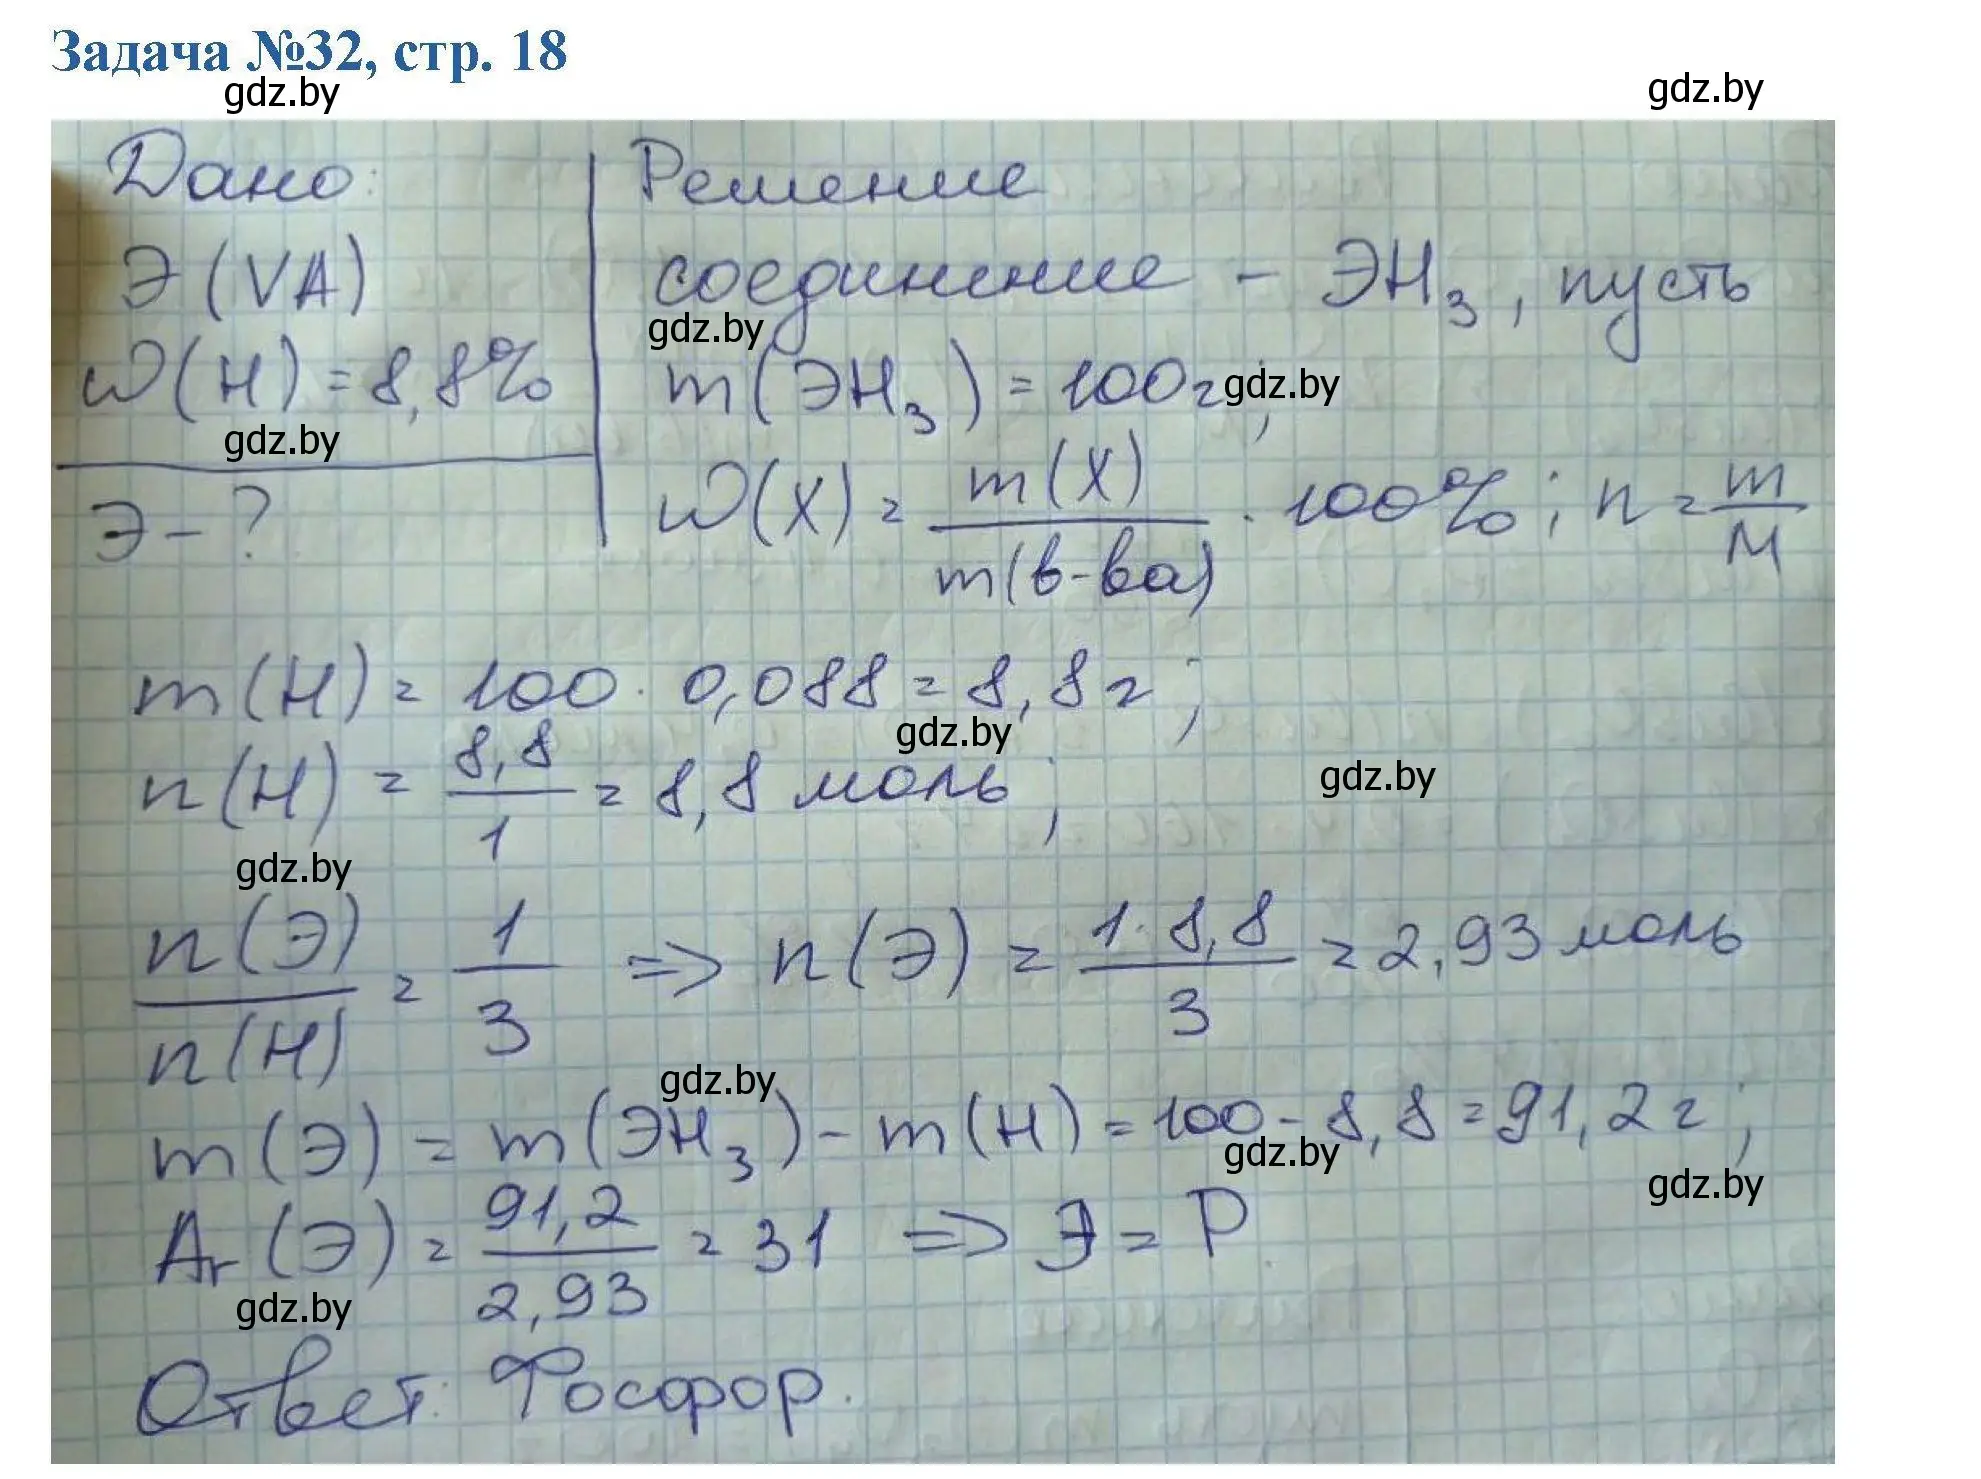 Задача №32, стр. 18
gdz.by gdz.by
Дано: Решение
Э (VA) соединение - ЭН₃, пусть
gdz.by
ω(H) = 8,8% m(ЭН₃) = 100г;
gdz.by
gdz.by
Э - ? ω(X) = m(X) / m(в-ва) · 100%; n = m / M
m(H) = 100 · 0,088 = 8,8г;
gdz.by
n(H) = 8,8 / 1 = 8,8 моль;
gdz.by
gdz.by
n(Э) / n(H) = 1 / 3 => n(Э) = 1·8,8 / 3 = 2,93 моль
gdz.by
m(Э) = m(ЭН₃) - m(H) = 100 - 8,8 = 91,2 г;
gdz.by
gdz.by
Ar(Э) = 91,2 / 2,93 = 31 => Э = P.
gdz.by
Ответ: Фосфор.